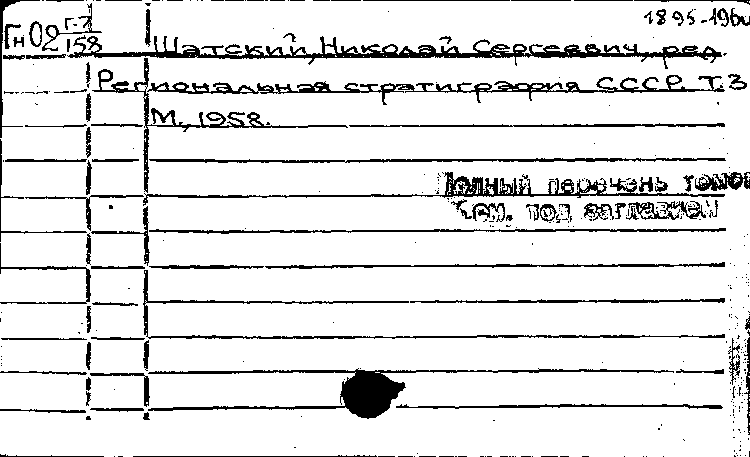 1895-1960
Гн02 Г-7/158
Шатский, Николай Сергеевич, ред.
Региональная стратиграфия СССР. Т.3
М., 1958.
Полный перечень томов
см. под заглавием